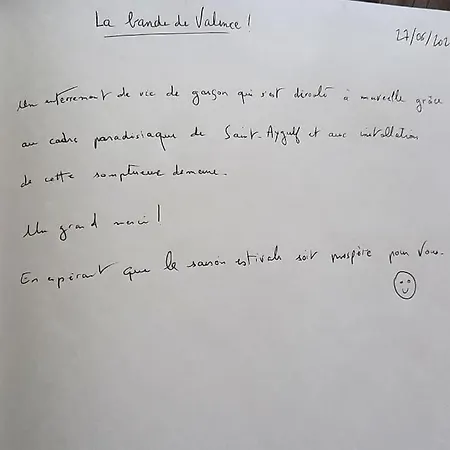 La bande de Valence !
27/06/202
Un enterrement de vie de garçon qui s'est déroulé à merveille grâce
au cadre paradisiaque de Saint-Aygulf et aux installations
de cette somptueuse demeure.
Un grand merci !
En espérant que la saison estivale soit prospère pour vous.